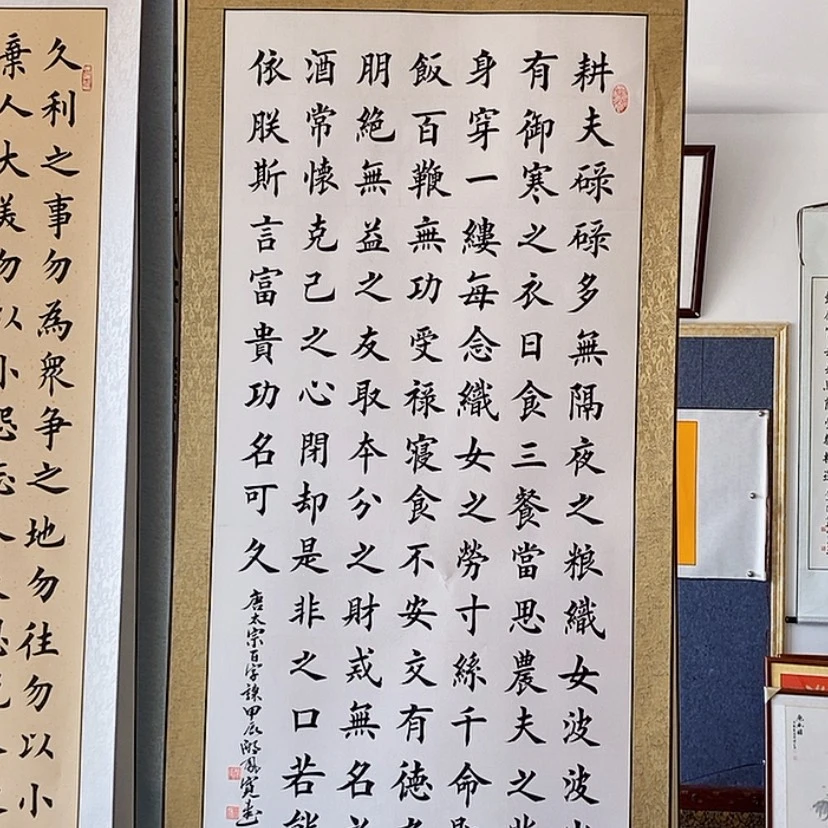 耕夫碌碌多無隔夜之粮織女波波
有御寒之衣日食三餐當思農夫之
身穿一縷每念織女之勞寸絲千命
飯百鞭無功受禄寝食不安交有德
朋絶無益之友取本分之財戒無名
酒常懷克己之心閉却是非之口若能
依朕斯言富貴功名可久
唐太宗百字諫甲辰
久利之事勿為衆争之地勿往勿以小
棄人大美勿以小怨忘人